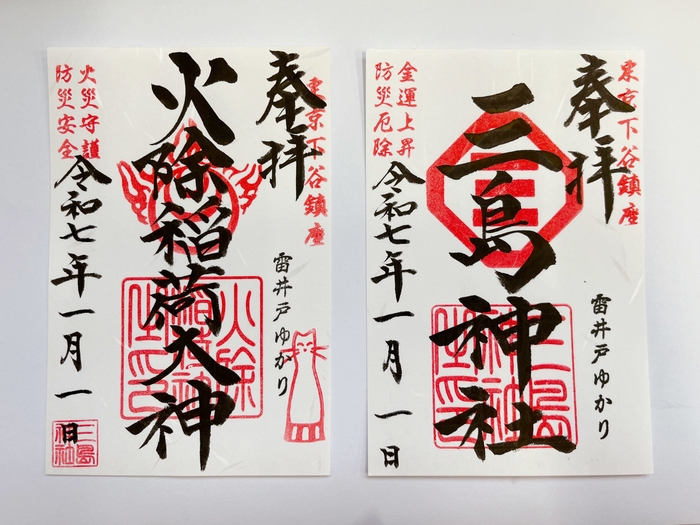 東京下谷鎮座
奉拝
雷井戸ゆかり
火除稲荷大神
火災守護
防災安全
令和七年一月一日
三島神社
東京下谷鎮座
奉拝
雷井戸ゆかり
三島神社
金運上昇
防災厄除
令和七年一月一日
三島神社